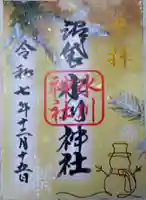 奉拝
沼袋
氷川神社
氷川
神社
令和七年十二月十五日